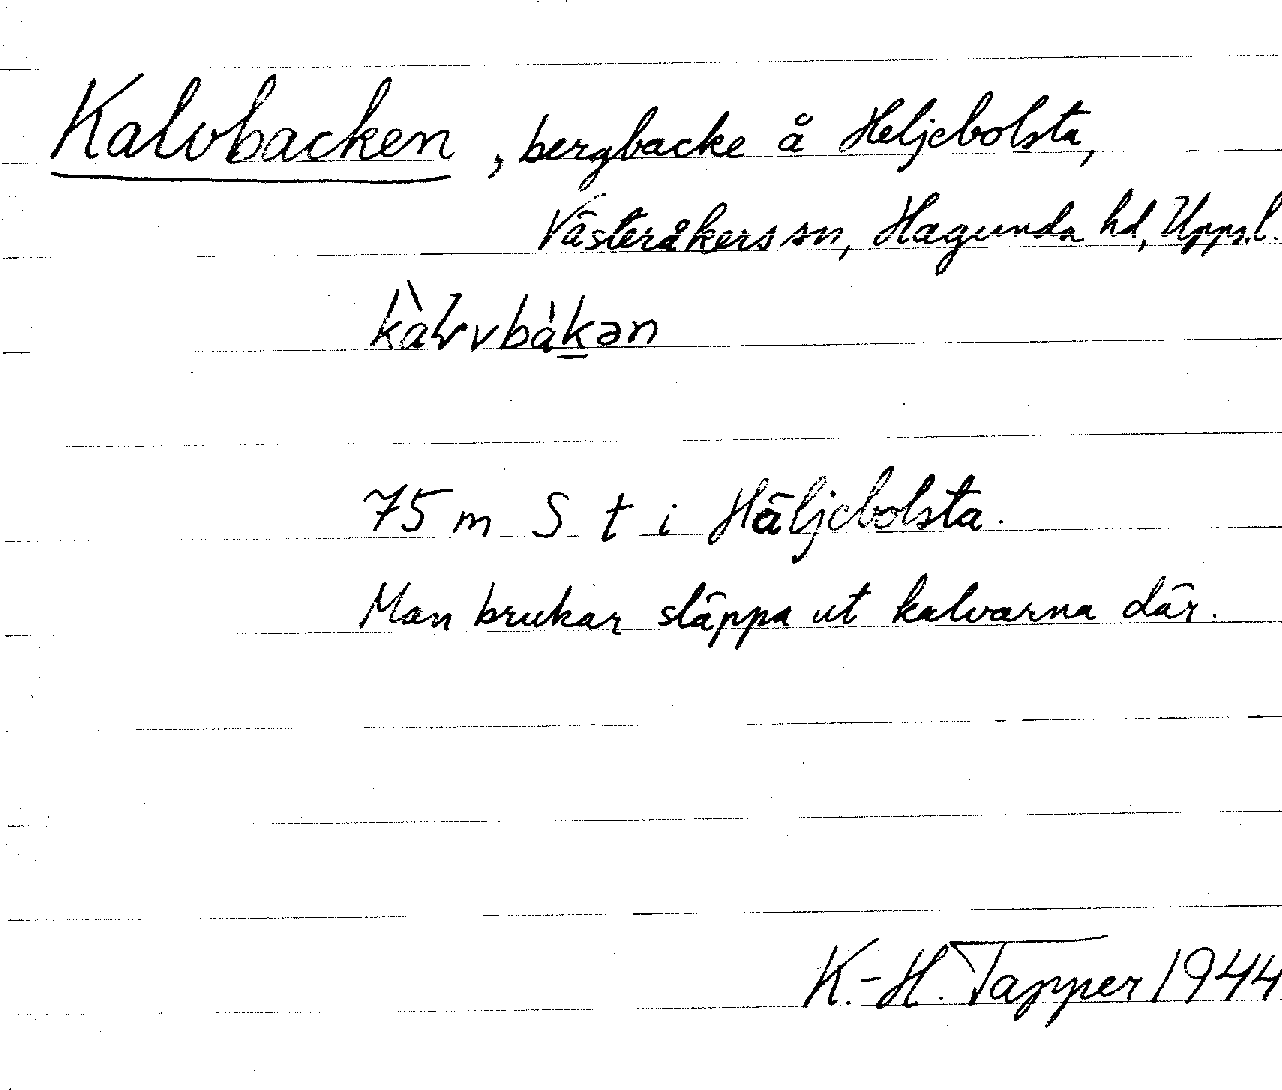 Kalvbacken, bergbacke å Heljebolsta,
Västeråkers sn, Hagunda hd, Uppl.
75 m S t i Häljebolsta.
Man brukar släppa ut kalvarna där.
K.-H. Tapper 1944